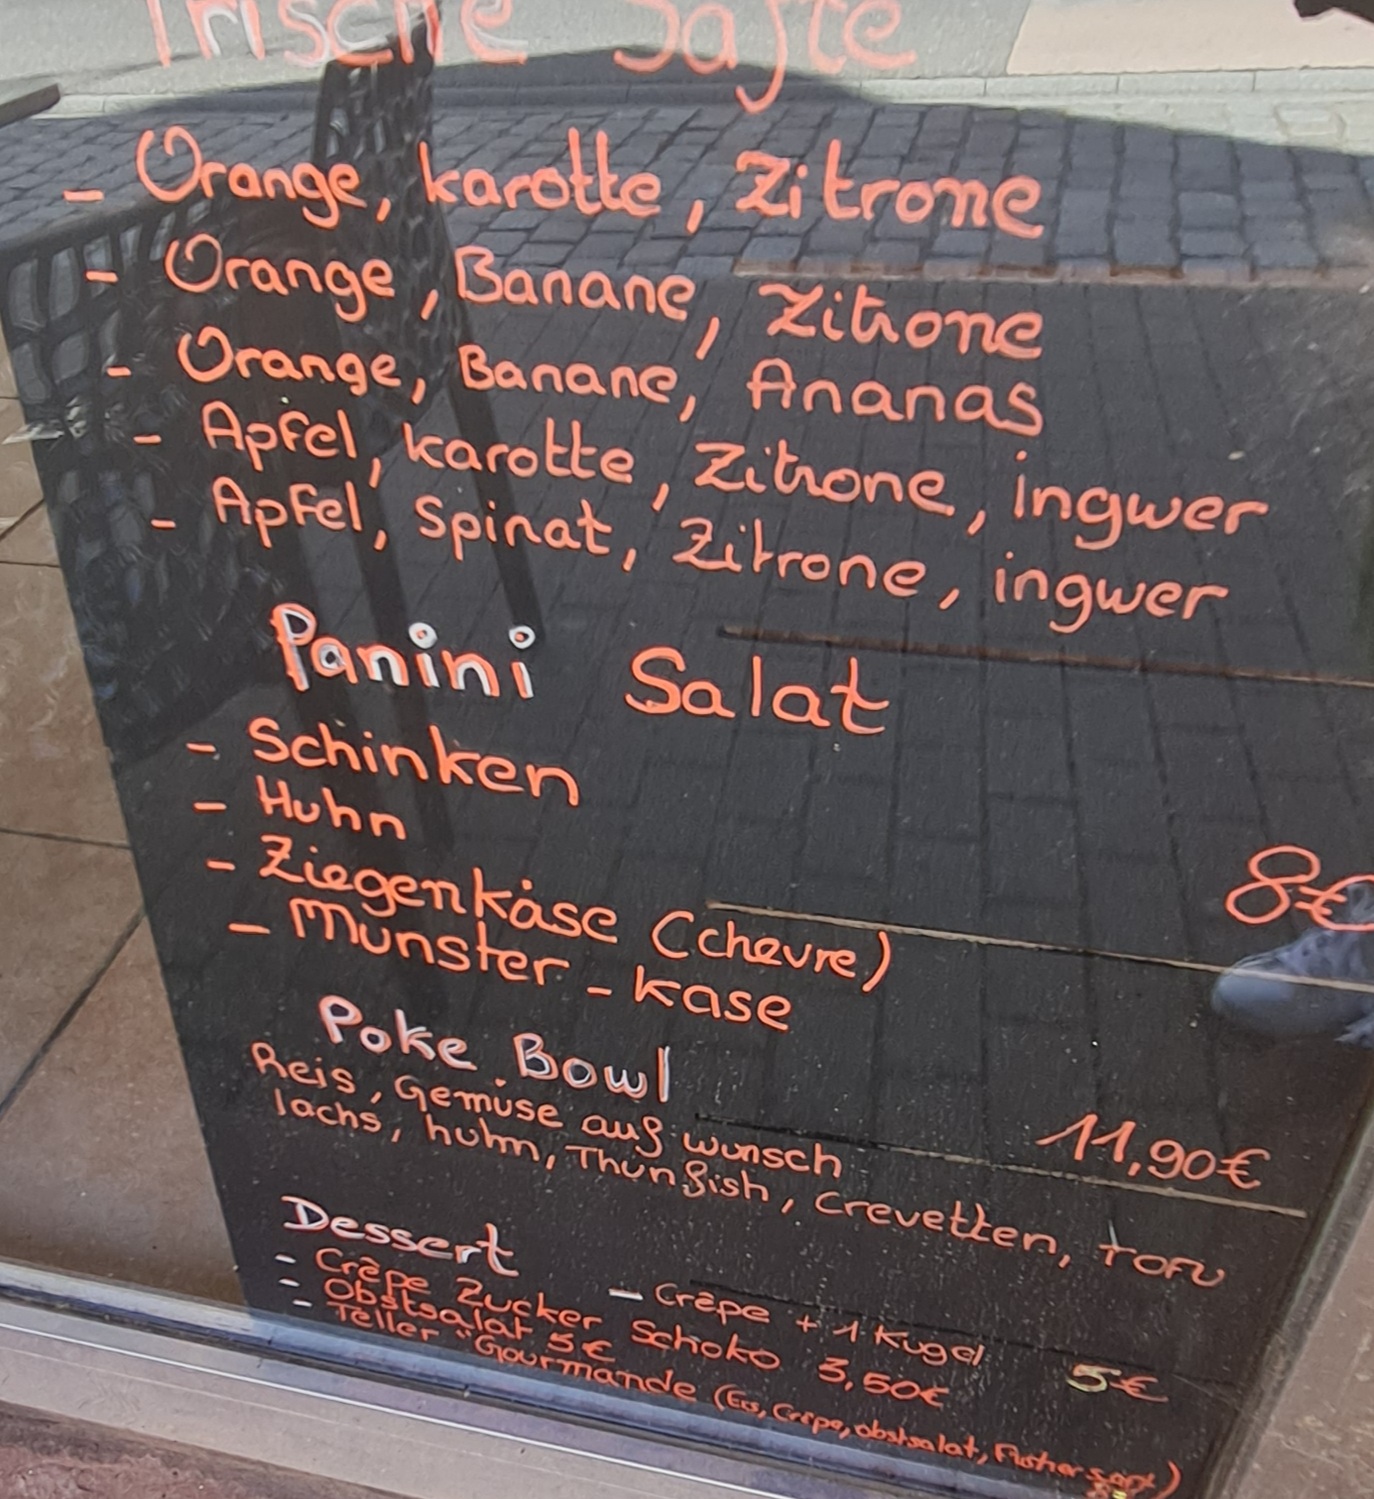 frische Säfte
- Orange, karotte, Zitrone
- Orange, Banane, Zitrone
- Orange, Banane, Ananas
- Apfel, karotte, Zitrone, ingwer
- Apfel, Spinat, Zitrone, ingwer
Panini Salat
- Schinken
- Huhn
- Ziegenkäse (chevre) 8€
- Munster-kase
Poke Bowl
Reis, Gemüse auf wunsch 11,90€
lachs, huhn, Thunfish, Crevetten, Tofu
Dessert
- Crêpe Zucker Schoko 3,50€
- Crêpe + 1 Kugel 5€
- Obstsalat 5€
- Teller "Gourmande (Eis, Crêpe, obstsalat,